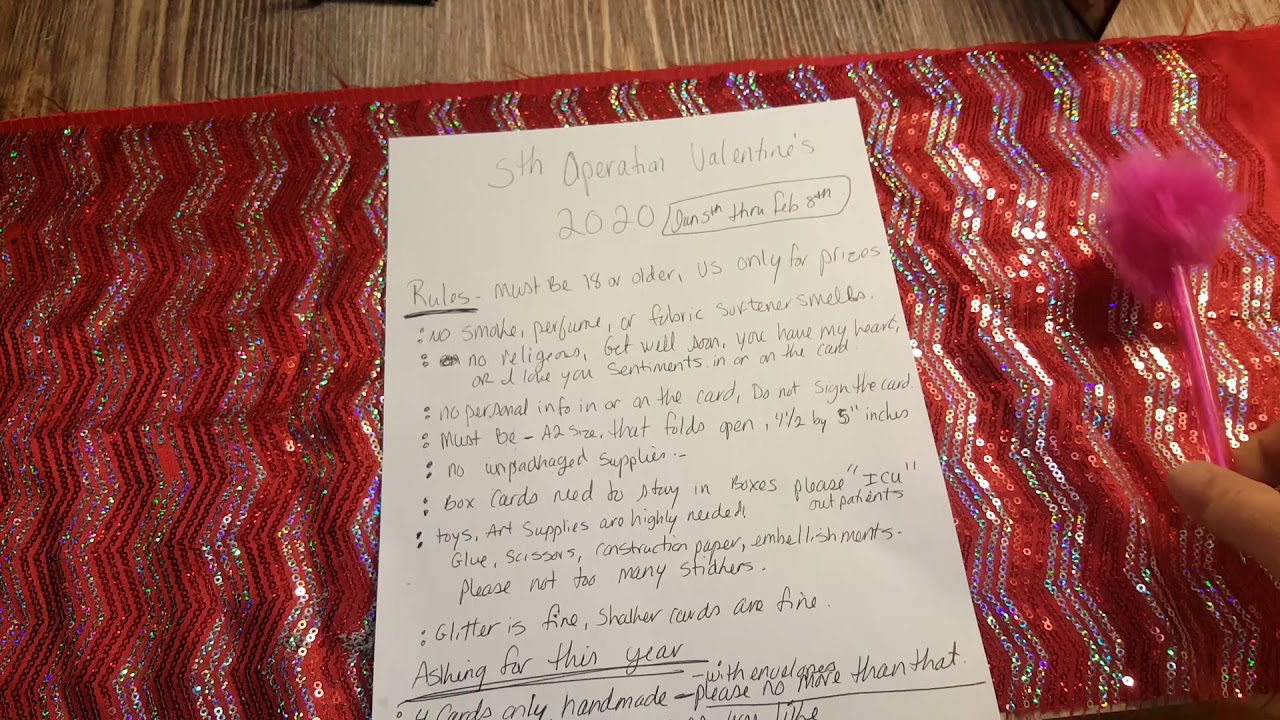 5th Operation Valentine's
2020 Jan 5th thru Feb 8th
Rules - Must Be 18 or older, US only for prizes
: no smoke, perfume, or fabric surtener smells.
: no religeous, Get well soon, you have my heart,
OR I love you Sentiments in or on the card
: no personal info in or on the card, Do not sign the card.
: Must Be - A2 Size, that folds open, 4 1/2 by 5" inches
: no unpackaged supplies.-
: Box Cards need to stay in Boxes please "ICU"
out patients
: toys, Art Supplies are highly needed,
Glue, Scissors, construction paper, embellishments -
please not too many stickers.
: Glitter is fine, Shaker cards are fine.
Asking for this year
- with envelopes
: 4 Cards only, handmade - please no more than that.
like